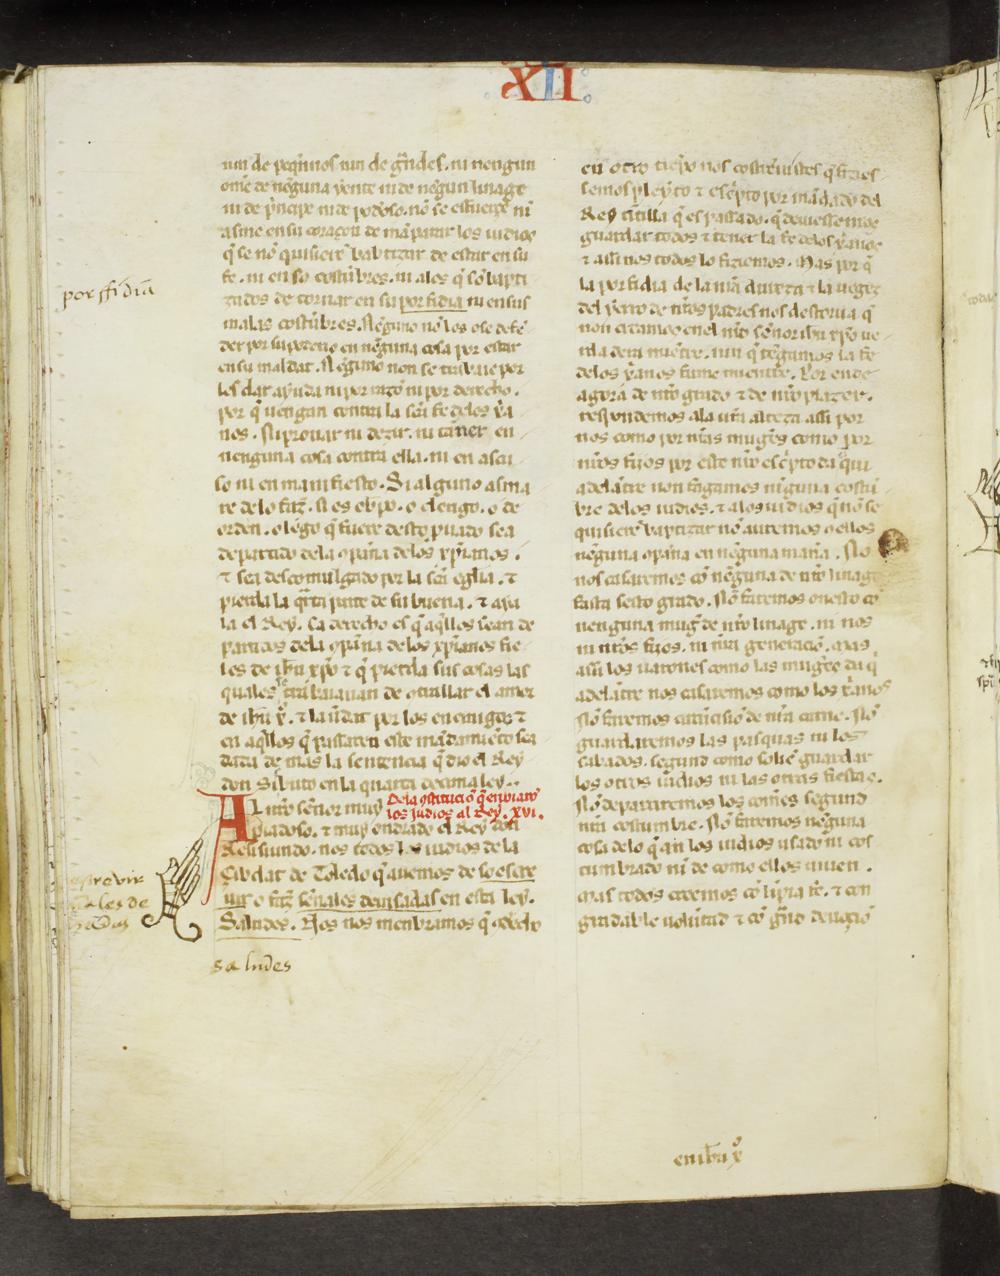 XII
nin de peq̃nnos nin de gñdes. ni nengun
om̃e de nẽguna yente ni de nẽgun linage
ni de pñcipe ni de podoso. nõ se esfuerçe ni
asme en su coraçon de mãparar los iudios
q̃ se nõ quisierẽ babtizar de estar en su
fe. ni en so costũbres. ni a los q̃ sõ bapti
zados de tornar en su porfidia ni en sus
malas costũbres. Nẽguno nõ los ose defẽ
der por su poderio en nẽguna cosa por estar
en su maldat. Nẽguno non se trabaie por
les dar ayuda ni por razõ ni por derecho.
por q̃ uengan contra la scã fe de los x̃a
nos. Ni prouar ni dezir. ni tañer en
nenguna cosa contra ella. ni en ascu
so ni en manifiesto. Si alguno asma
re de lo faz̃. si es obpo. o clerigo. o de
orden. o lego q̃ fuere desto puado sea
departido dela cpãña delos xp̃ianos.
τ sea descomulgado por la scã eglia. τ
pierda la q̃rta parte de su buena. τ aya
la el Rey. Ca derecho es q̃ aq̃llos sean de
partidos dela cpãña de los xp̃ianos fie
les de ihũ xpõ τ q̃ pierda sus cosas las
quales trabaiauan de otrallar el amor
de ihũ x̃. τ la uidar por los enemigos τ
en aq̃llos q̃ passaren este mãdamiẽto sea
dada de mas la sentencia q̃ dio el Rey
don Sisbuto en la quarta decima ley..
Al nr̃o señor muy
De la cstituciõ q̃ enuiarõ
los judios al Rey. xvi.
piadoso. τ muy ondrado el Rey don
Resisundo. nos todos los iudios de la
Çibdat de Toledo q̃ auemos de so escre
uir o faz̃ señales deuisadas en esta ley.
Saludes. Nos nos menbramos q̃ cdecho
en otro tiẽpo nos costreñistes q̃ fizies
semos pleyto τ escpto por mãdado del
Rey cintilla q̃ es passado. q̃ deuiessemos
guardar todos τ tener la fe delos x̃anos
τ assi nos todos lo fiziemos. Mas por q̃
la porfidia de la nr̃a dureza τ la uegez
del yerro de nr̃os padres nos destorua q̃
non creamos en el nr̃o señor ihũ xpõ ue
rda dera mietre. nin q̃ tẽgamos la fe
delos x̃anos firme mientre. Por ende
agora de nr̃o grado τ de nr̃o plazer.
respondemos ala ur̃a alteza assi por
nos como por nr̃as mugr̃s como por
nr̃os fijos por este nr̃o escpto da q̃ui
adelãtre non fagamos nĩguna costũ
bre delos iudios. τ alos iudios q̃ nõ se
quisierẽ baptizar nõ auremos o ellos
nẽguna cpãña en nẽguna mañã. Nõ
nos casaremos cõ nẽguna de nr̃o linage
fasta sesto grado. Nõ faremos onesto cõ
nenguna mugr̃ de nr̃o linage. ni nos
ni nr̃os fijos. ni nr̃a generaciõ. mas
assi los uarones como las mugr̃es da q̃
adelãtre nos casaremos como los x̃anos
Nõ faremos circũcisiõ de nr̃a carne. Nõ
guardaremos las pasquas ni los
sabados. segund como soliẽ guardar
los otros iudios ni las otras fiestas.
Nõ departiremos los comẽs segund
nr̃a costumbre. Nõ faremos nẽguna
cosa delo q̃ an los iudios usado ni cos
tumbrado ni de como ellos uiuen.
mas todos creemos cõ lipia fe. τ con
gradable uolũtad τ cõ gñd deuociõ
por ffidia
escrevir
señales de
saludes
en ihũ x̃o